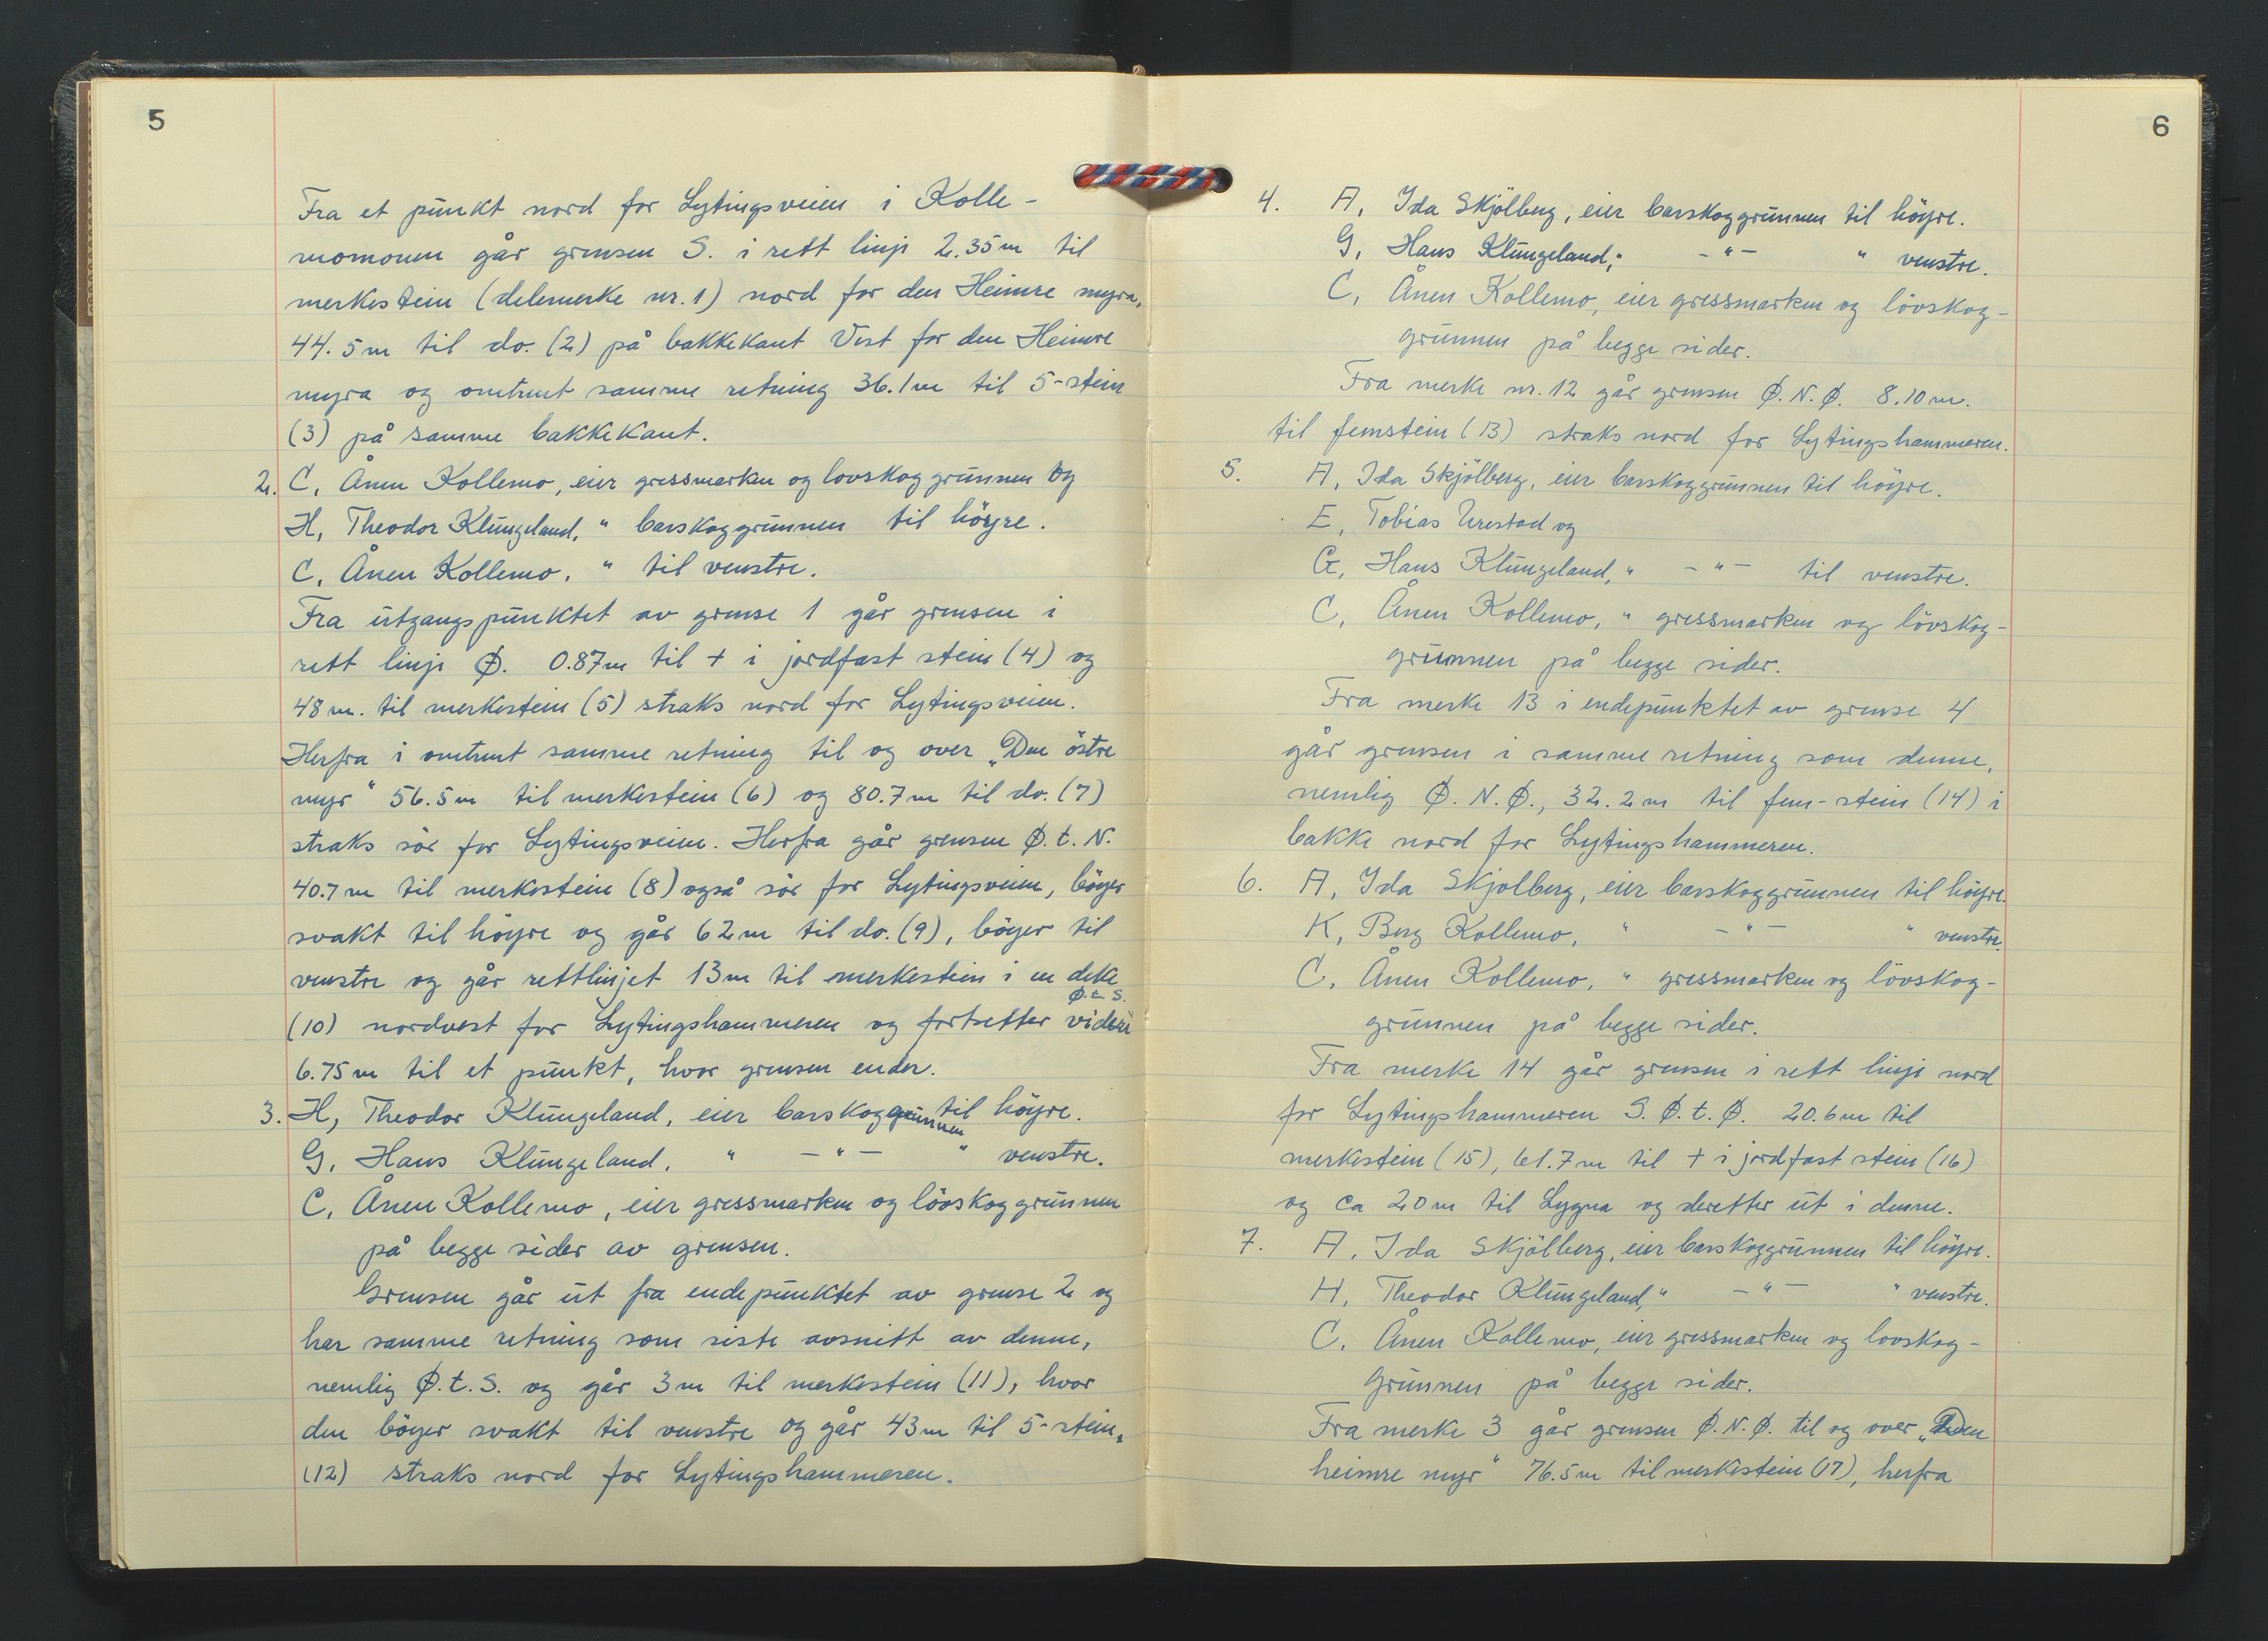 5
Fra et punkt nord for Lytingsveien i Kolle-
momonen går grensen S. i rett linje 2.35m til
merkestein (delemerke nr. 1) nord for den Heimre myra,
44.5m til do. (2) på bakkekant Vest for den Heimre
myra og omtrent samme retning 36.1m til 5-stein
(3) på samme bakkekant.
2. C, Ånen Kollemo, eier gressmarken og lovskoggrunnen og
H, Theodor Klungeland, " barskoggrunnen til höyre.
C, Ånen Kollemo, " til venstre.
Fra utgangspunktet av grense 1 går grensen i
rett linje Ø. 0.87m til + i jordfast stein (4) og
48m. til merkestein (5) straks nord for Lytingsveien.
Herfra i omtrent samme retning til og over „Den östre
myr" 56.5m til merkestein (6) og 80.7m til do. (7)
straks sör for Lytingsveien. Herfra går grensen Ø.t.N.
40.7m til merkestein (8) også sör for Lytingsveien, böyer
svakt til höyre og går 62m til do. (9), böyer til
venstre og går rettlinjet 13m til merkestein i en deke
Ø.t.S.
(10) nordvest for Lytingshammeren og fortsetter videre
6.75m til et punkt, hvor grensen ender.
3. H, Theodor Klungeland, eier barskoggrunnen til höyre.
G, Hans Klungeland, " -"- " venstre.
C, Ånen Kollemo, eier gressmarken og lövskoggrunnen
på begge sider av grensen.
Grensen går ut fra endepunktet av grense 2 og
har samme retning som siste avsnitt av denne,
nemlig Ø.t.S. og går 3m til merkestein (11), hvor
den böyer svakt til venstre og går 43m til 5-stein,
(12) straks nord for Lytingshammeren.
6
4. A, Ida Skjölberg, eier barskoggrunnen til höyre.
G, Hans Klungeland," -"- " venstre.
C, Ånen Kollemo, eier gressmarken og lövskog-
grunnen på begge sider.
Fra merke nr. 12 går grensen Ø.N.Ø. 8.10m.
til femstein (13) straks nord for Lytingshammeren.
5. A, Ida Skjölberg, eier barskoggrunnen til höyre.
E, Tobias Urestad og
G, Hans Klungeland," -"- til venstre.
C, Ånen Kollemo, " gressmarken og lövskog-
grunnen på begge sider.
Fra merke 13 i endepunktet av grense 4
går grensen i samme retning som denne,
nemlig Ø.N.Ø., 32.2m til fem-stein (14) i
bakke nord for Lytingshammeren.
6. A, Ida Skjolberg, eier barskoggrunnen til höyre.
K, Berg Kollemo, " -"- " venstre.
C, Ånen Kollemo, " gressmarken og lövskog-
grunnen på begge sider.
Fra merke 14 går grensen i rett linje nord
for Lytingshammeren S.Ø.t.Ø. 20.6m til
merkestein (15), 61.7m til + i jordfast stein (16)
og ca 20m til Lygna og deretter ut i denne.
7. A, Ida Skjölberg, eier barskoggrunnen til höyre.
H, Theodor Klungeland," -"- " venstre.
C, Ånen Kollemo, eier gressmarken og lovskog-
grunnen på begge sider.
Fra merke 3 går grensen Ø.N.Ø. til og over „Den
heimre myr" 76.5m til merkestein (17), herfra